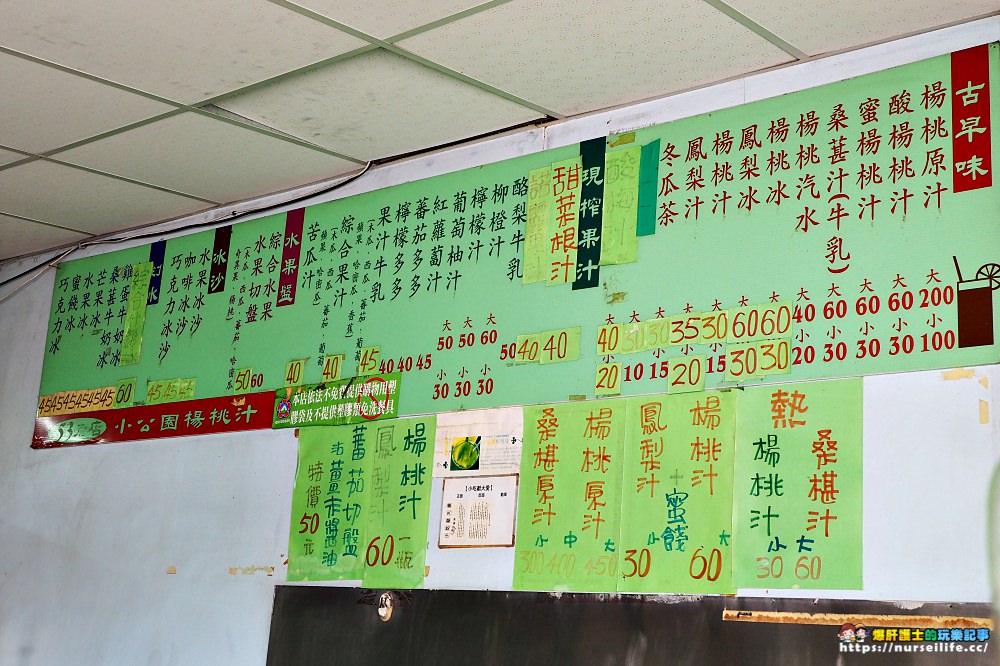 古早味
楊桃原汁 大200 小100
酸楊桃汁 大60 小30
蜜楊桃汁 大60 小30
桑甚汁(牛乳) 大60 小30
楊桃汽水 大40 小20
楊桃冰 大60 小30
鳳梨冰 大60 小30
楊桃汁 大30 小15
鳳梨汁 大35 小20
冬瓜茶
現榨果汁
甜菜根汁 40
酪梨牛乳 50
柳橙汁 大60 小30
檸檬汁 大50 小30
葡萄柚汁 大50 小30
紅蘿蔔汁 45
蕃茄多多 40
檸檬多多 40
果汁牛乳 45
(木瓜、西瓜、蕃茄、葡萄
蘋果、哈密瓜、香蕉)
綜合果汁 40
苦瓜汁 40
水果盤
綜合水果 60
水果切盤 50
(木瓜、西瓜、蕃茄、哈密瓜
水冰沙
水果冰沙 45
咖啡冰沙 45
巧克力冰沙 45
幻冰
雞蛋牛奶冰 60
桑甚牛奶冰 45
芒果冰 45
水果冰 45
蜜餞冰 45
巧克力冰 45
小公園楊桃汁
本店依法不免費提供購物用塑
膠袋及不提供塑膠類免洗餐具
蕃茄切盤
沾薑末醬油
特價50元
楊桃汁
鳳梨汁
60一瓶
【小吃獻大愛】
桑椹原汁
楊桃原汁
小 中 大
300 400 450
鳳梨汁
楊桃汁
蜜餞
小 大
30 60
熱
楊桃汁
桑椹汁
小 大
30 60
爆肝護士的玩樂記事
https://nurseilife.cc/